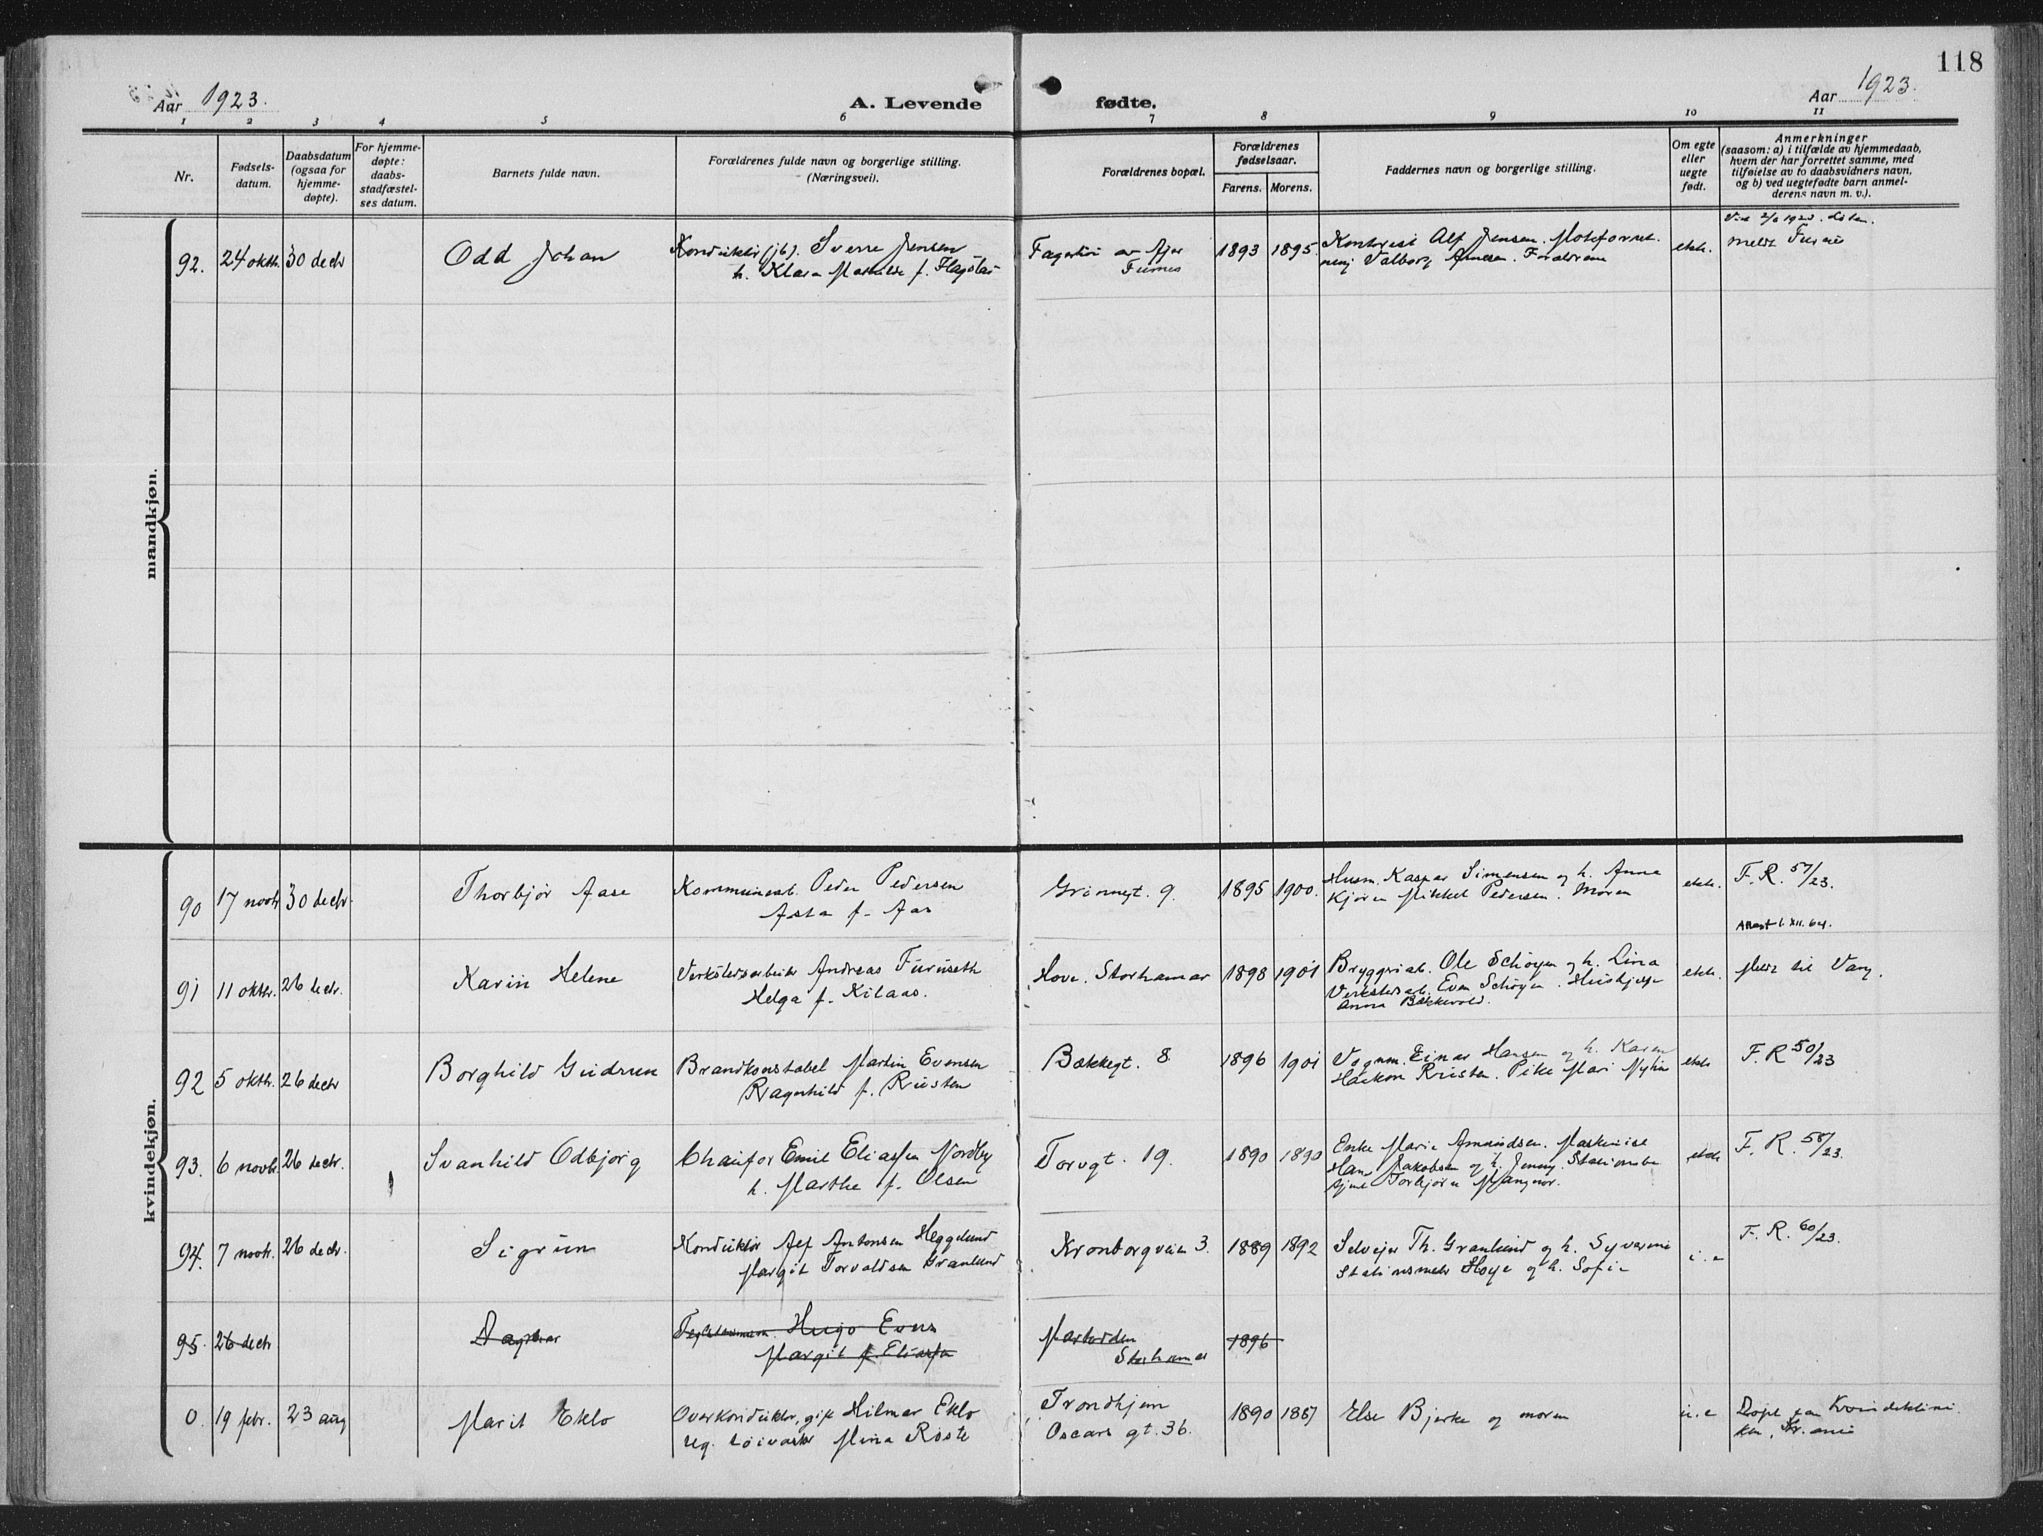 118
Aar 1923.
A. Levende fødte.
Aar 1923.
1 2 3 4 5 6 7 8 9 10 11
Nr.
Fødsels-
datum.
Daabsdatum
(ogsaa for
hjemme-
døpte).
For hjemme-
døpte:
daabs-
stadfæstel-
ses datum.
Barnets fulde navn.
Forældrenes fulde navn og borgerlige stilling.
(Næringsvei).
Forældrenes bopæl.
Forældrenes
fødselsaar.
Farens. Morens.
Faddernes navn og borgerlige stilling.
Om egte
eller
uegte
født.
Anmerkninger
(saasom: a) i tilfælde av hjemmedaab,
hvem der har forrettet samme, med
tilføielse av to daabsvidners navn,
og b) ved uegtefødte barn anmel-
derens navn m. v.).
mandkjøn.
92. 24 oktb. 30 decbr
Odd Johan
Konduktør (jb). Sverre Jensen
h. Klara Mathilde f. Flagstad
av Ajer
Furnes
1893 1895
Kontorist Alf Jensen.
Valborg Arnesen. Forældrene
ekte.
meldt Furnes
kvindekjøn.
90 17 novbr 30 decbr.
Thorbjør Aase
Kommunearb. Peder Pedersen
Asta f. Aas
Grønnegt. 9.
1895 1900.
Husm. Kaspar Simensen og h. Anna
Mikkel Pedersen. Moren
ekte.
F. R. 57/23.
Attest 1. XII. 64.
91 11 oktbr. 26 decbr.
Karin Helene
Verkstedsarbeider Andreas Furuseth
Helga f. Kilaas.
Hove. Storhamar
1898 1901
Bryggeriarb. Ole Schøyen og h. Lina
Verkstedsarb. Even Schøyen. Hushjelp
Anna Bakkevold.
ekte.
Meldt til Vang.
92 5 oktbr. 26 decbr
Borghild Gudrun
Brandkonstabel Martin Evensen
Ragnhild f. Rusten
Bækkegt. 8
1896 1901
Vognm. Einar Hansen og h. Karen
Haakon Rusten. Pike Mari
ekte
F. R 50/23
93. 6 novbr. 26 decbr.
Svanhild Odbjørg
Chaufør Emil Eliassen Nordby
h. Marthe f. Olsen
Torvgt. 19.
1890 1890
Enke Marie Amundsen. Maskinist
Hans Jakobsen og h. Jenny. Stationsbe
tjent Torbjørn Mangnor.
ekte
F. R. 58/23.
94. 7 novbr. 26 decbr.
Sigrun
Konduktør Alf Antonsen Heggelund
Margit Torvaldsen Granlund
Kronborgveien 3.
1889 1892
Selveier Th. Granlund og h. Syverine
Stationsmester Hoye og h. Sofie
u. e
F. R. 60/23.
95. 26 decbr
Dagmar
Hugo Evers
Margit f. Eliassen
Storhamar
1896
0. 19 febr. 23 aug
Marit Eklo
Overkonduktør, gift Hilmar Eklo
ug. Mina Røste
Trondhjem
Oscars gt. 36.
1890 1887
Else Bjerke og moren
u. e
Døpt paa Kvindeklini
ken, Kr.ania